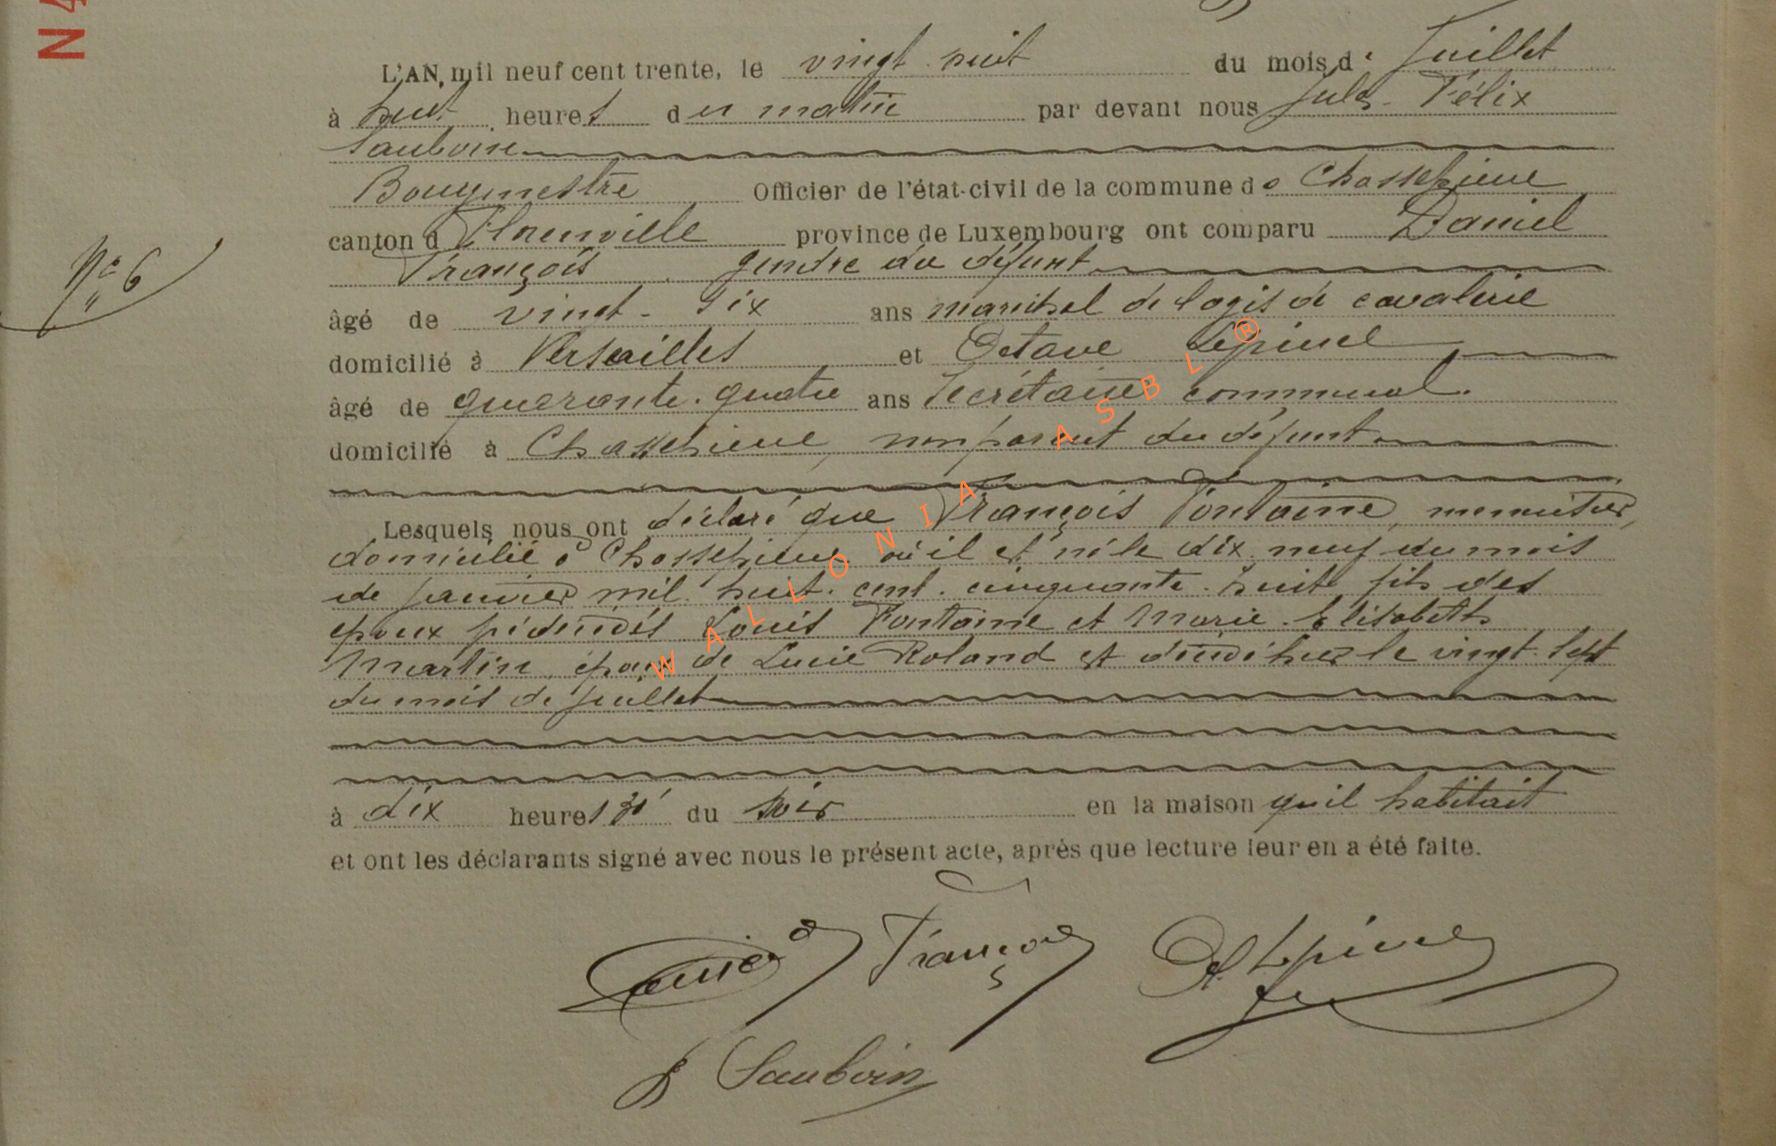 N4
L'AN, mil neuf cent trente, le vingt huit du mois d Juillet
à huit heures du matin par devant nous Jules Félix
Sauboin
Bourgmestre Officier de l'état-civil de la commune de Chassepierre
canton d Florenville province de Luxembourg ont comparu Daniel
François gendre du défunt
N° 6
âgé de vingt-six ans maréchal de logis de cavalerie
domicilié à Versailles et Octave Lépine
âgé de quarante-quatre ans Secrétaire communal.
domicilié à Chassepierre, non parent du défunt
Lesquels nous ont déclaré que François Fontaine, menuisier,
domicilié à Chassepierre où il est né le dix neuf du mois
de janvier mil huit cent cinquante huit fils des
époux prédécédés Louis Fontaine et Marie Elisabeth
Martin, époux de Lucie Roland est décédé hier le vingt sept
du mois de juillet
à dix heures 30' du soir en la maison qu'il habitait
et ont les déclarants signé avec nous le présent acte, après que lecture leur en a été faite.
Daniel François O. Lépine
J Sauboin
WALLONIA ASBL ®